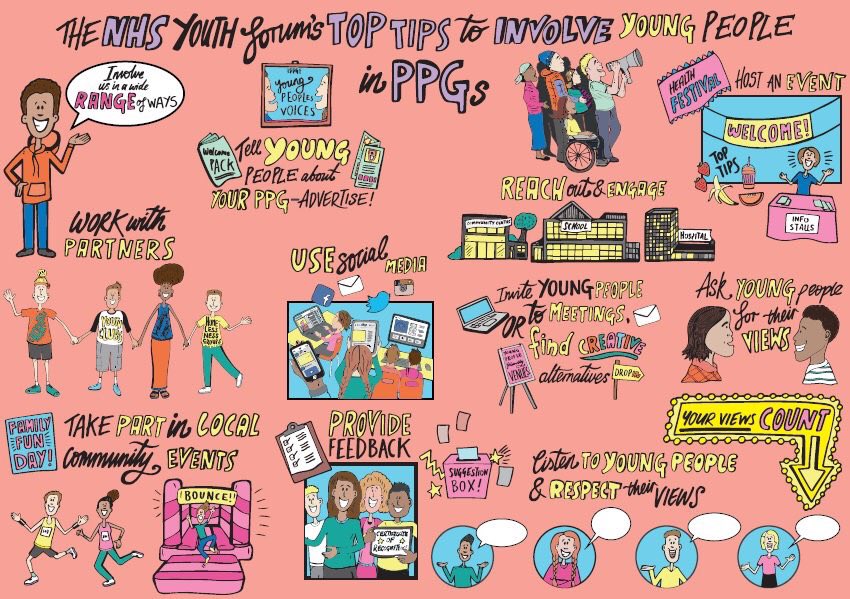 THE NHS YOUTH forum's TOP TIPS to INVOLVE YOUNG PEOPLE
in PPGs
Involve
us in a wide
RANGE of WAYS
young
PEOPLES
VOICES
Welcome
PACK
Tell YOUNG
PEOPLE about
YOUR PPG - ADVERTISE!
REACH out & ENGAGE
COMMUNITY CENTRE
SCHOOL
HOSPITAL
HEALTH
FESTIVAL
HOST AN EVENT
WELCOME!
TOP
TIPS
INFO
STALLS
WORK with
PARTNERS
YOUTH
CLUB
USE social
MEDIA
Invite YOUNG PEOPLE
to MEETINGS,
OR
find CREATIVE
alternatives
YOUNG
PEOPLE
friendly
VENUES
DROP IN
Ask YOUNG people
for their
VIEWS
FAMILY
FUN
DAY!
TAKE PART in LOCAL
community EVENTS
BOUNCE!!
PROVIDE
FEEDBACK
CERTIFICATE
OF
RECOGNITION
SUGGESTION
BOX!
YOUR VIEWS COUNT
Listen TO YOUNG PEOPLE
& RESPECT their VIEWS